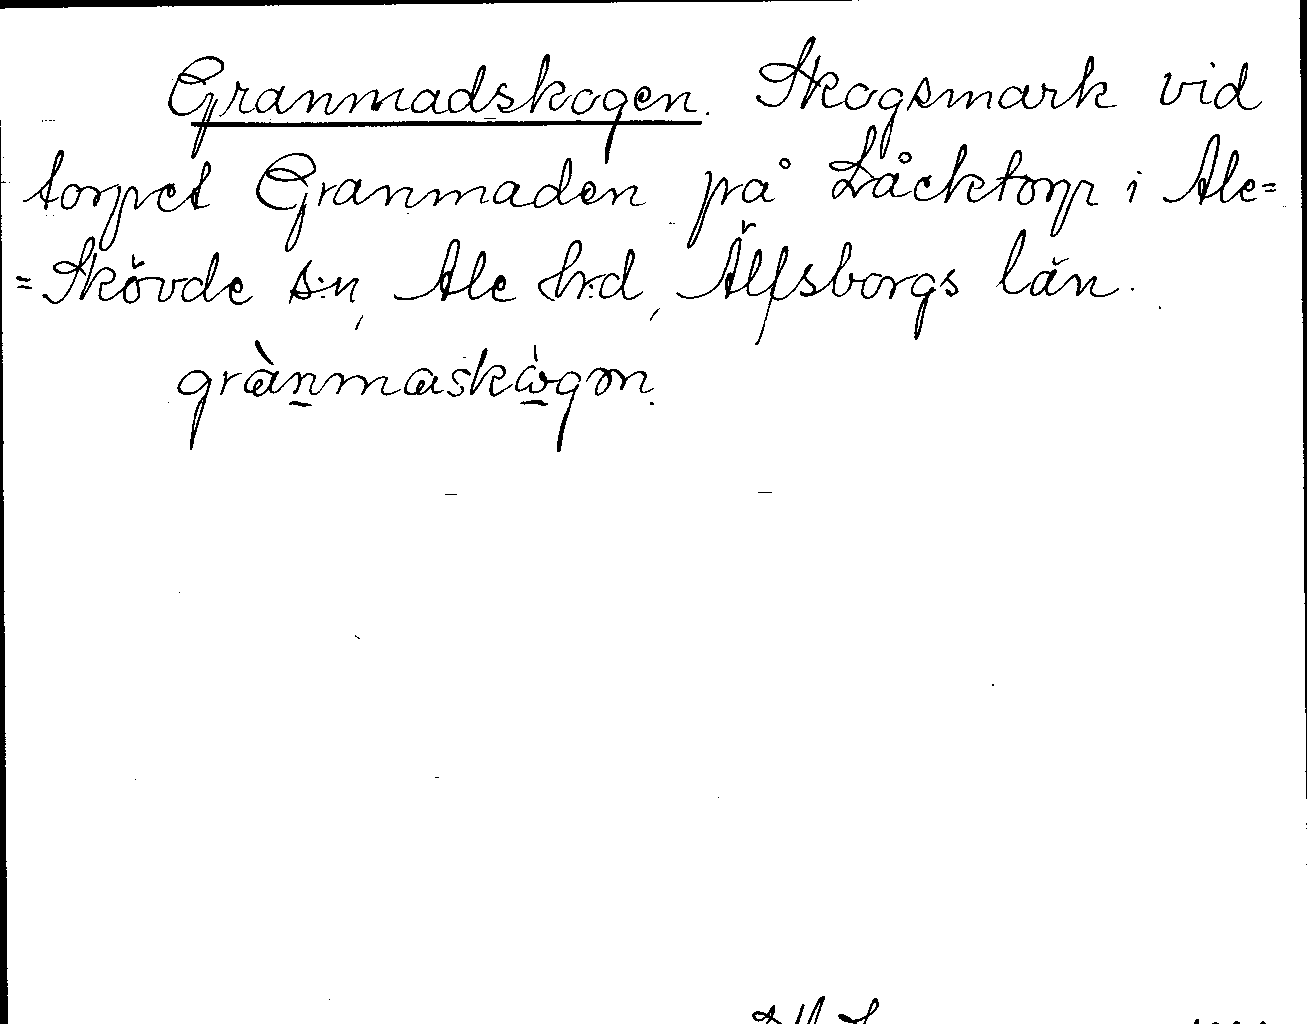 Granmadskogen. Skogsmark vid
torpet Granmaden på Låcktorp i Ale=
=Skövde s:n, Ale h:rd, Älfsborgs län.
grànmaskògən.